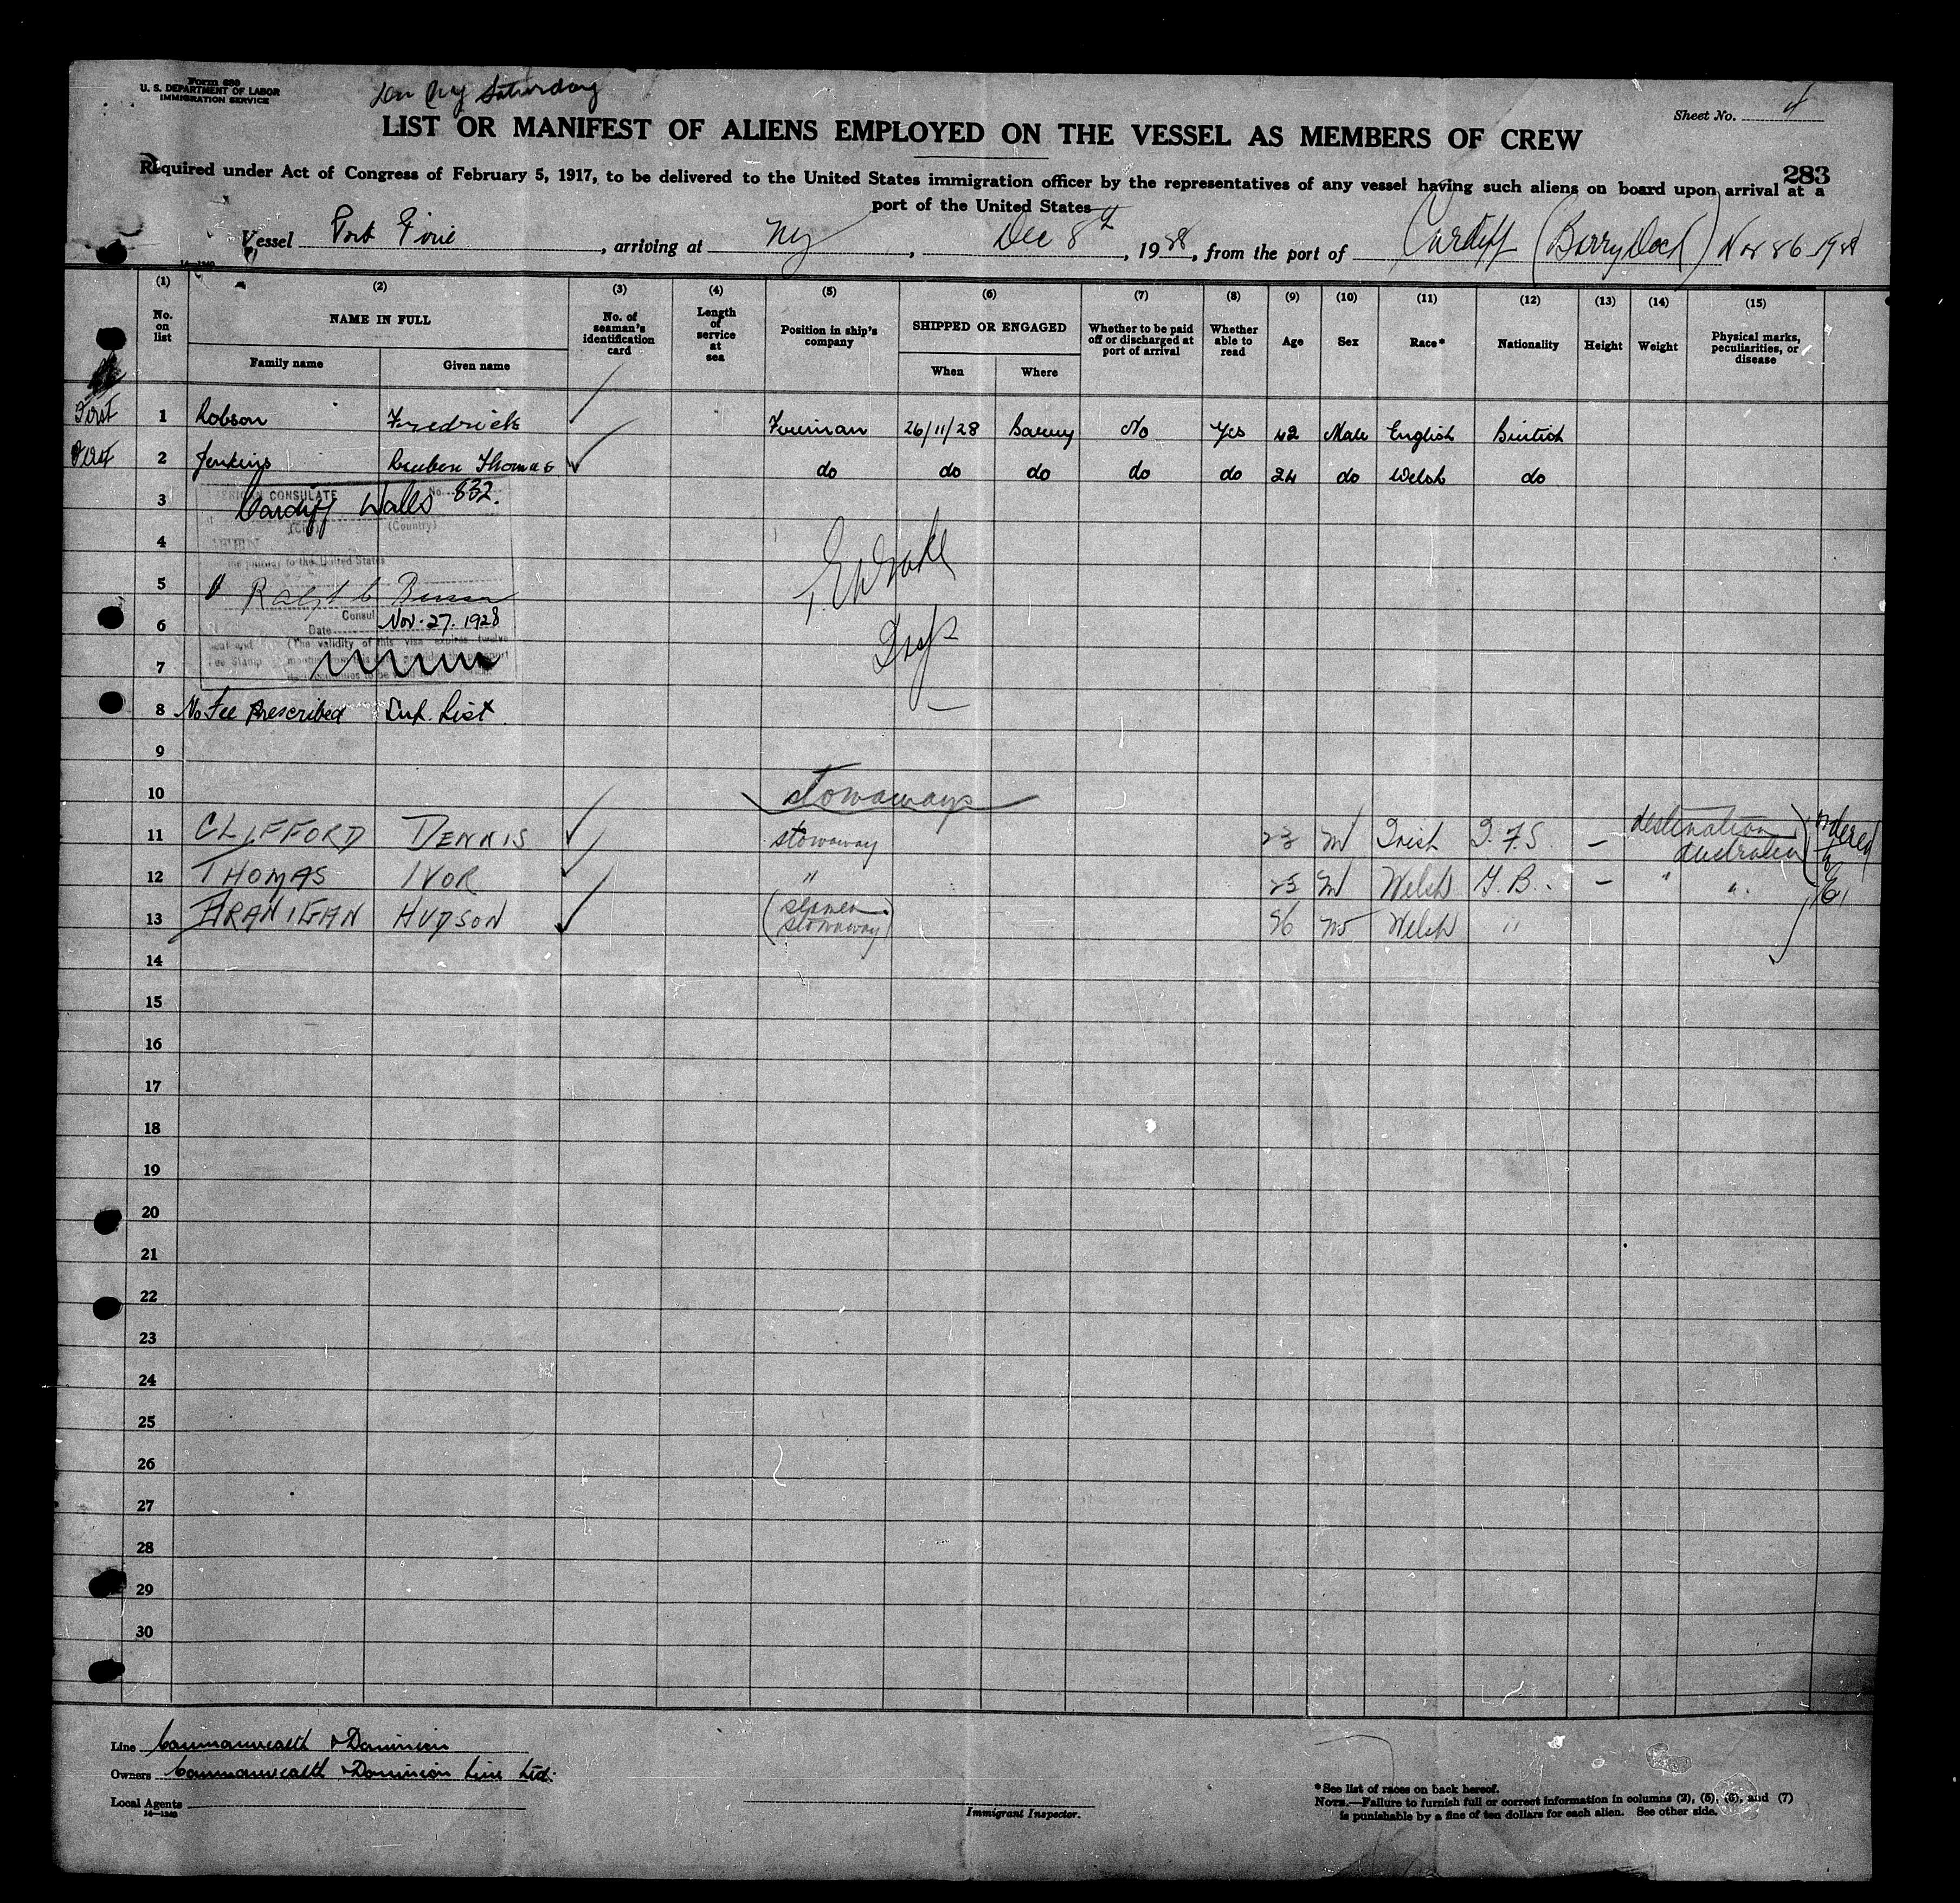 Form 680
U. S. DEPARTMENT OF LABOR
IMMIGRATION SERVICE
Saturday
Sheet No. 4
LIST OR MANIFEST OF ALIENS EMPLOYED ON THE VESSEL AS MEMBERS OF CREW
283
Required under Act of Congress of February 5, 1917, to be delivered to the United States immigration officer by the representatives of any vessel having such aliens on board upon arrival at a
port of the United States
Vessel Port Pirie, arriving at NY, Dec 8th, 1928, from the port of Cardiff (Barry Dock) Nov 26 1928
(1) (2) (3) (4) (5) (6) (7) (8) (9) (10) (11) (12) (13) (14) (15)
No. on list NAME IN FULL No. of seaman's identification card Length of service at sea Position in ship's company SHIPPED OR ENGAGED Whether to be paid off or discharged at port of arrival Whether able to read Age Sex Race* Nationality Height Weight Physical marks, peculiarities, or disease
Family name Given name When Where
First 1 Robson Fredrick Fireman 26/11/28 Barry No Yes 42 Male English British
First 2 Jenkins Reuben Thomas do do do do do 24 do Welsh do
3 AMERICAN CONSULATE No. 832.
Cardiff Wales
(City) (Country)
4
the journey to the United States
5
Consul
6 Date Nov. 27. 1928
(The validity of this visa expires twelve
7 Fee Stamp
8 No Fee Prescribed Sup. List.
9
10 Stowaways
11 CLIFFORD DENNIS stowaway 23 M Irish I.F.S. – destination Australia ordered
12 THOMAS IVOR " 23 M Welsh G.B. – " "
13 BRANIGAN HUDSON (seamen stowaway) 26 M Welsh "
14
15
16
17
18
19
20
21
22
23
24
25
26
27
28
29
30
Line Commonwealth & Dominion
Owners Commonwealth & Dominion Line Ltd.
Local Agents
14—1240
Immigrant Inspector.
*See list of races on back hereof.
NOTE.—Failure to furnish full or correct information in columns (2), (5), (6), and (7)
is punishable by a fine of ten dollars for each alien. See other side.